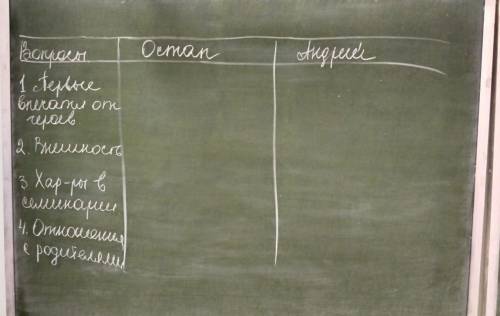 Вопросы Остап Андрий
1 Первые
впечатл от
героев.
2. Внешность
3 Хар-ры в
семинарии
4. Отношения
с родителями